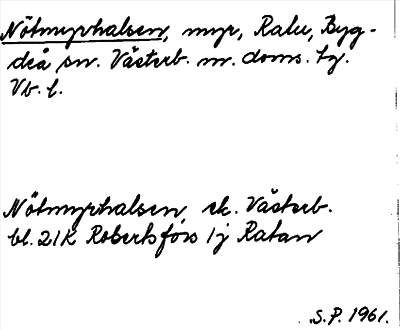 Nötmyrhalsen, myr, Ralu, Byg-
deå sn. Västerb. m. doms. tg.
Vb. l.
Nötmyrhalsen, ek. Västerb.
bl. 21K Robertsfors 1j Ratan
S.P. 1961.